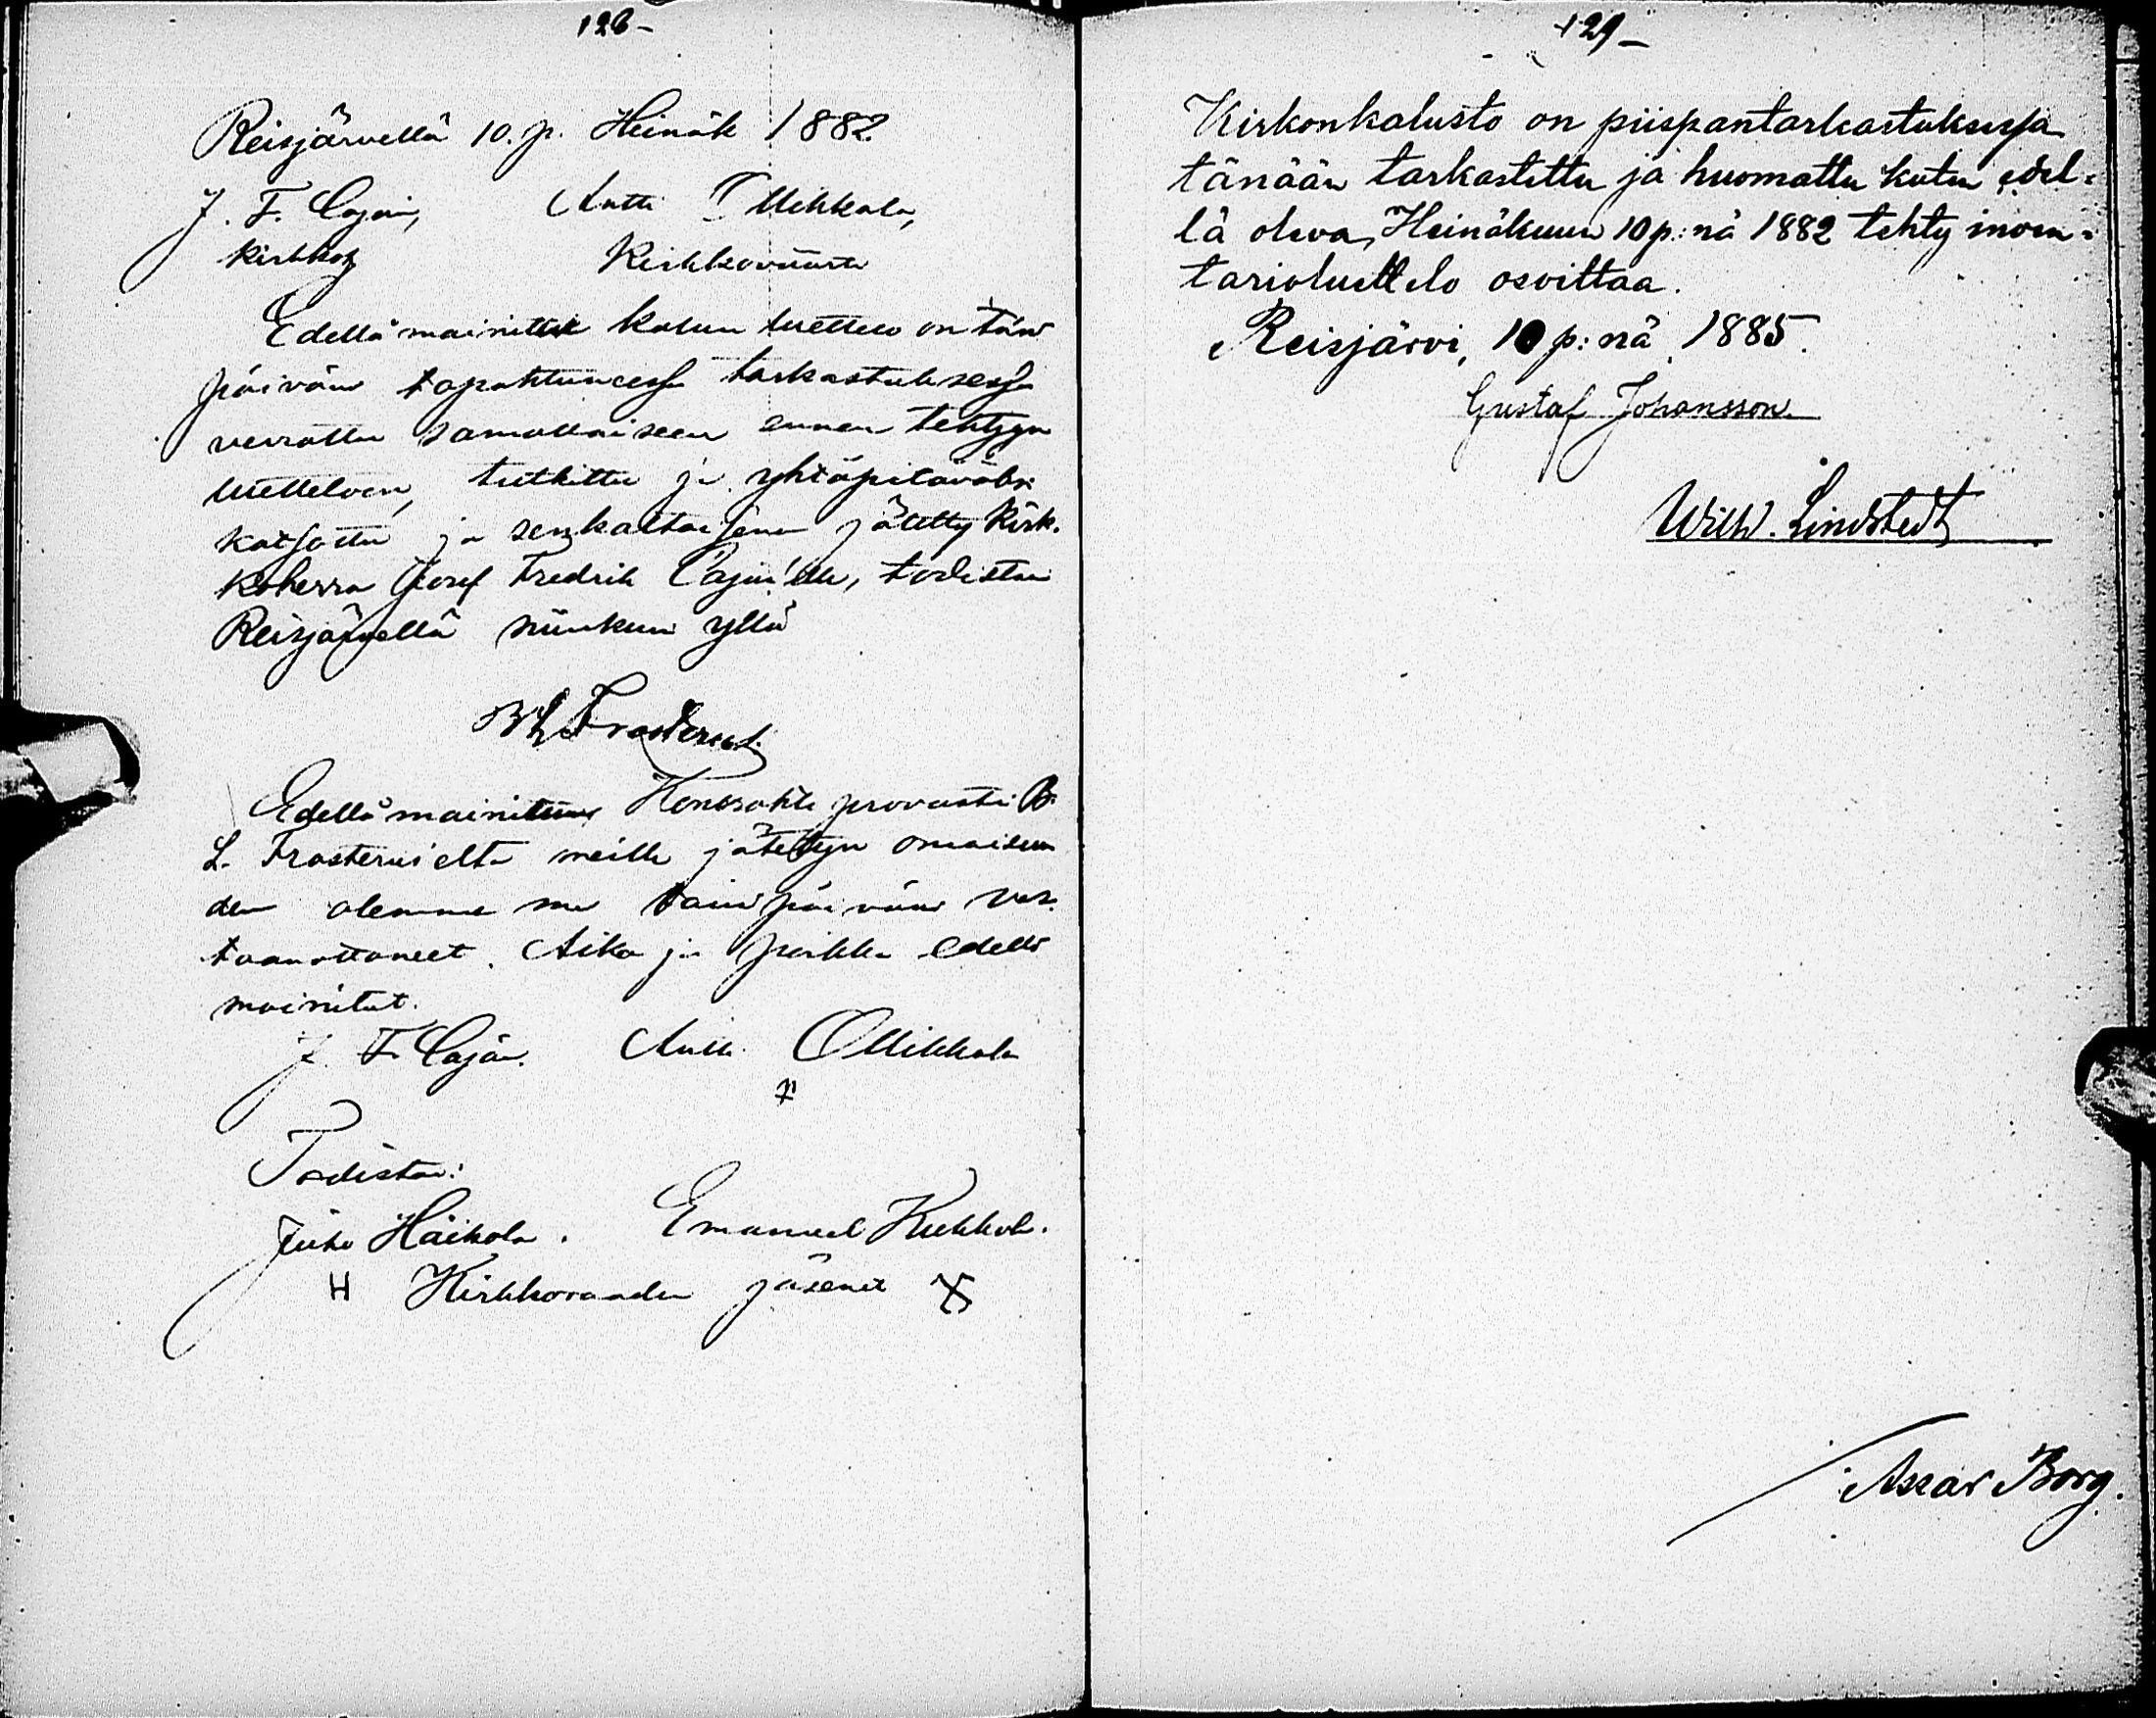 128-
Reisjärvellä 10. p. Heinäk 1882
J. F. Cajan, Antti Ollikkala,
kirkkoh Kirkkoväärti
Edellä mainittu kalun luettelo on tän
päivän tapahtuneessa tarkastuksessa
verrattu samallaiseen ennen tehtyyn
luetteloon, tutkittu ja yhtäpitäväksi
katsottu ja senkaltaisena jätetty Kirk-
koherra Josef Fredrik Cajan'ille, todistaa
Reisjärvellä niinkuin yllä
B L Frosterus.
Edellä mainitun Konrahti provasti B.
L. Frosterus'elta meille jätetyn omaisuu
den olemme me tänäpäivänä vas-
taanottaneet. Aika ja paikka edellä
mainitut.
J. F. Cajan. Antti Ollikkala
Todistaa:
Juho Häikola. Emanuel Kukkola.
H Kirkkoraadin jäsenet X
129-
Kirkonkalusto on piispantarkastuksessa
tänään tarkastettu ja huomattu kuten edel-
lä oleva, Heinäkuun 10 p:nä 1882 tehty inven-
tarioluettelo osoittaa.
Reisjärvi, 10 p:nä 1885.
Gustaf Johansson
Wilh. Lindstedt
Oscar Borg.